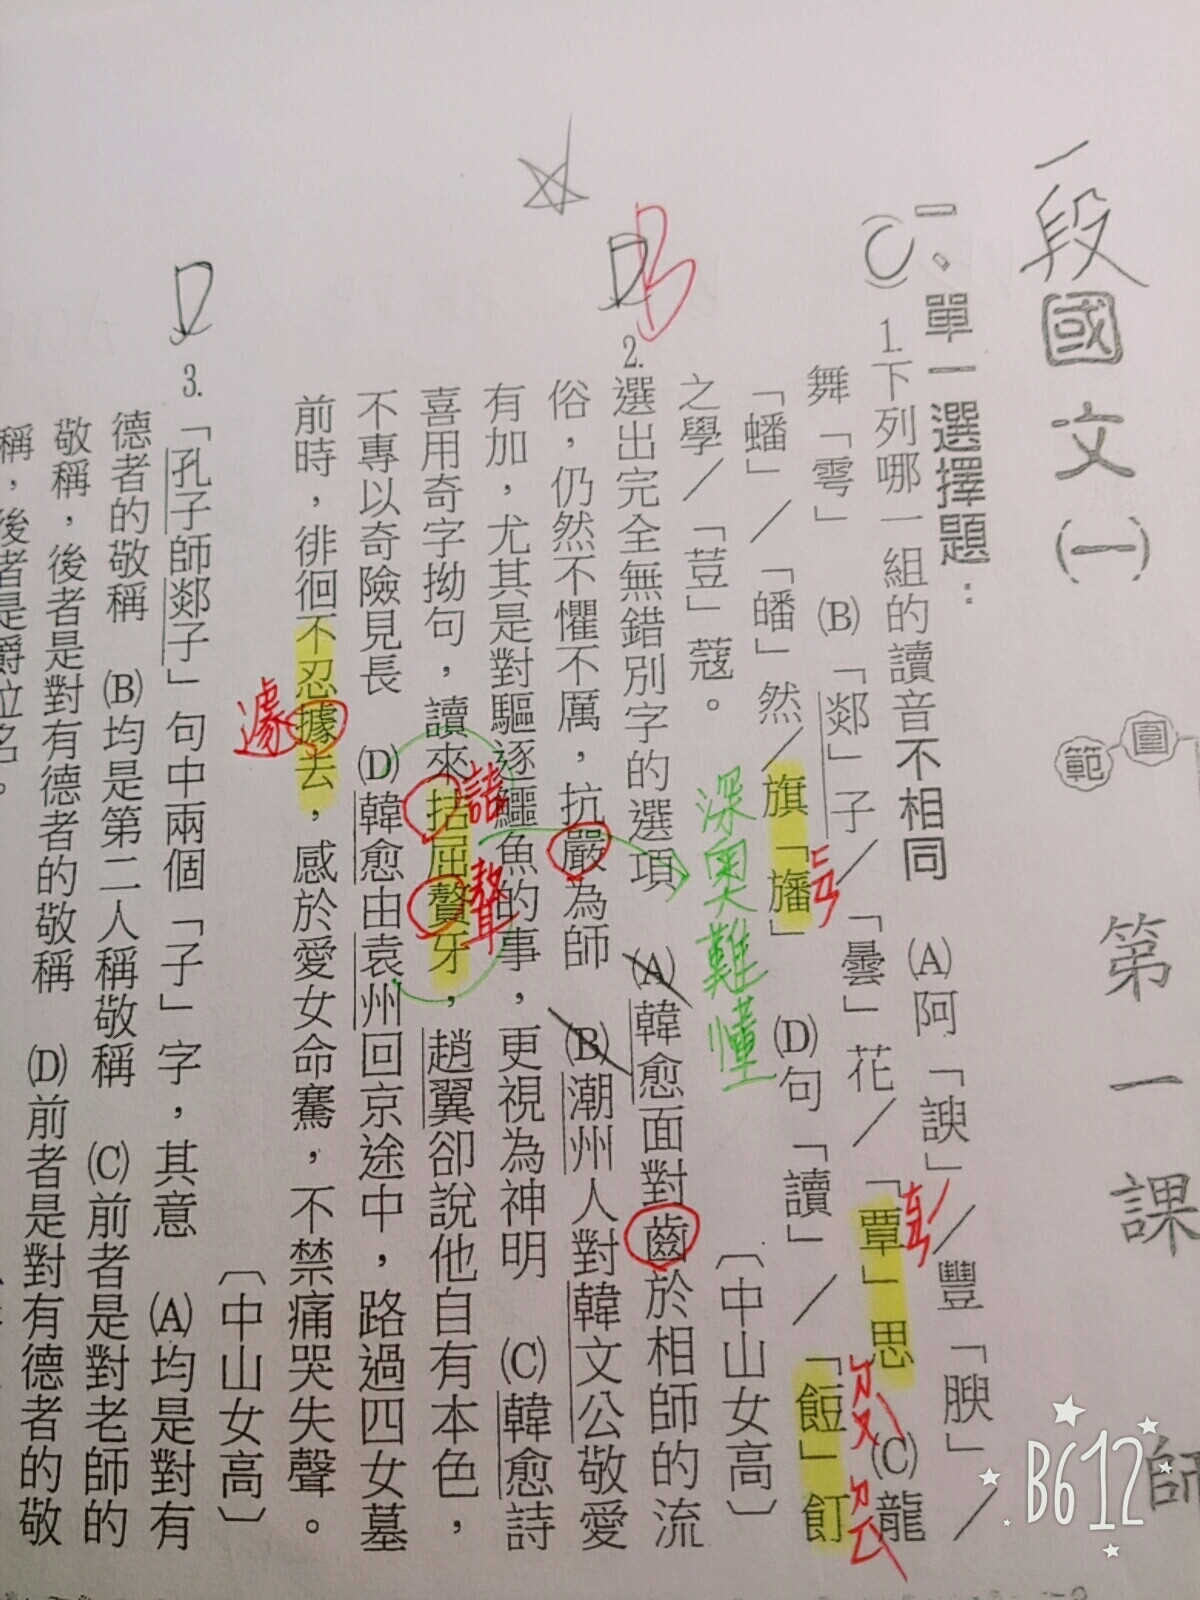 一段國文(一)
範圍
第一課
師
一、單一選擇題:
(C)
1.下列哪一組的讀音不相同 (A)阿「諛」/豐「腴」/
舞「雩」 (B)「郯」子/「曇」花/「覃」思 (C)龍
ㄊㄢˊ
「蟠」/「皤」然/旗「旛」 (D)句「讀」/「餖」飣
ㄈㄢ
ㄉㄡˋ
ㄉㄥˋ
之學/「荳」蔻。 〔中山女高〕
深奧難懂
D
B
2.選出完全無錯別字的選項 (A)韓愈面對齒於相師的流
俗,仍然不懼不厲,抗嚴為師 (B)潮州人對韓文公敬愛
有加,尤其是對驅逐鱷魚的事,更視為神明 (C)韓愈詩
喜用奇字拗句,讀來拮屈贅牙,趙翼卻說他自有本色,
詰
聱
不專以奇險見長 (D)韓愈由袁州回京途中,路過四女墓
前時,徘徊不忍據去,感於愛女命騫,不禁痛哭失聲。
遽
〔中山女高〕
D
3.「孔子師郯子」句中兩個「子」字,其意 (A)均是對有
德者的敬稱 (B)均是第二人稱敬稱 (C)前者是對老師的
敬稱,後者是對有德者的敬稱 (D)前者是對有德者的敬
稱,後者是爵位名。
B612